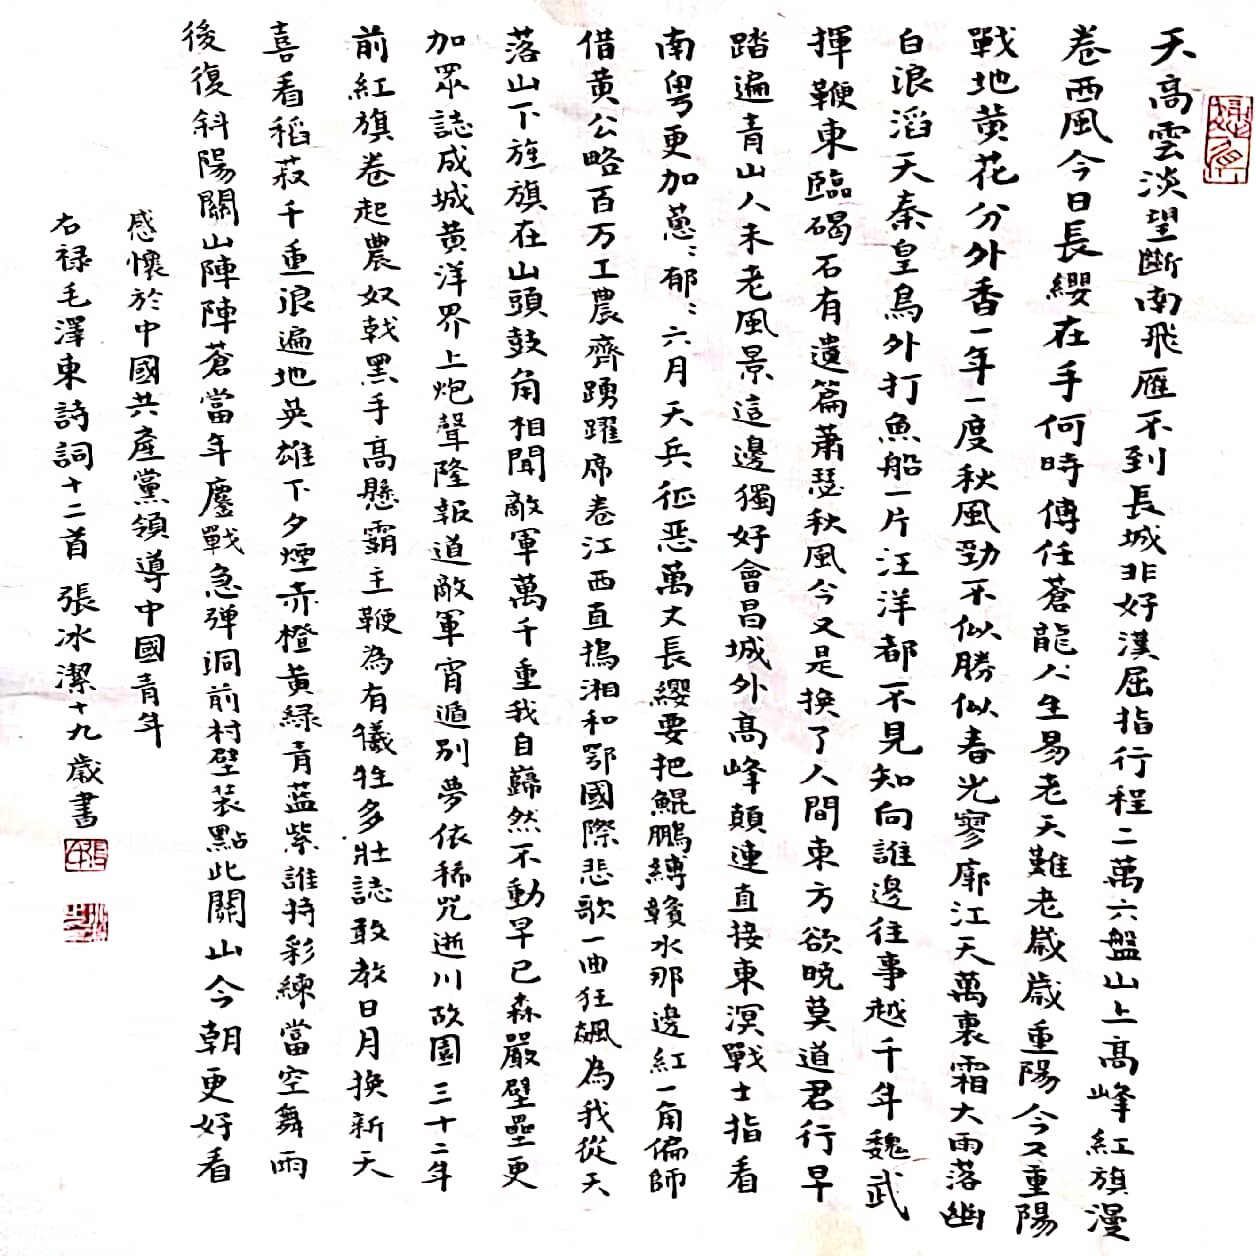 天高雲淡望斷南飛雁不到長城非好漢屈指行程二萬六盤山上高峰紅旗漫
卷西風今日長纓在手何時傅任蒼龍人生易老天難老歲歲重陽今又重陽
戰地黄花分外香一年一度秋風勁不似勝似春光寥廓江天萬裏霜大雨落幽
白浪滔天秦皇島外打魚船一片汪洋都不見知向誰邊往事越千年魏武
揮鞭東臨碣石有遺篇蕭瑟秋風今又是換了人間東方欲曉莫道君行早
踏遍青山人未老風景這邊獨好會昌城外高峰顛連直接東溟戰士指看
南粵更加蔥:郁:六月天兵征惡萬丈長纓要把鯤鵬縛贛水那邊紅一角偏師
借黄公略百万工農齊踴躍席卷江西直搗湘和鄂國際悲歌一曲狂飆為我從天
落山下旌旗在山頭鼓角相聞敵軍萬千重我自巋然不動早已森嚴壁壘更
加眾誌成城黄洋界上炮聲隆報道敵軍宵遁別夢依稀咒逝川故園三十二年
前紅旗卷起農奴戟黑手高懸霸主鞭為有犧牲多壯誌敢教日月換新天
喜看稻菽千重浪遍地英雄下夕煙赤橙黄綠青蓝紫誰持彩練當空舞雨
後復斜陽關山陣陣蒼當年鏖戰急弹洞前村壁装點此關山今朝更好看
感懷於中國共產黨領導中國青年
右禄毛澤東詩詞十二首 張冰潔十九歲書